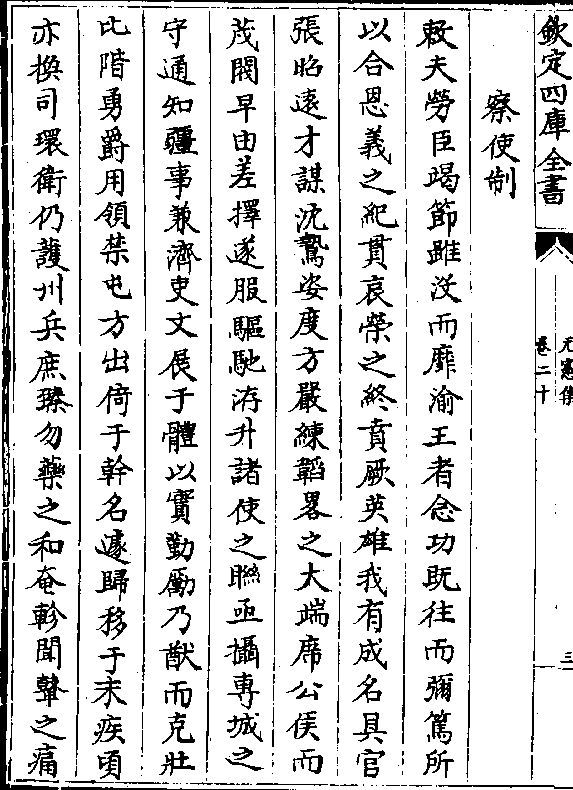 欽定四庫全書
元憲集
卷二十
三
察使制
敕夫勞臣竭節雖沒而靡渝王者念功既往而彌篤所
以合恩義之紀貫哀榮之終賁厥英雄我有成名具官
張昭遠才謀沈鷙姿度方嚴練韜畧之大端席公侯而
茂閥早由差擇遂服驅馳洊升諸使之聨亟攝專城之
守通知疆事兼濟吏文展于體以實勤勵乃猷而克壯
比階勇爵用領禁屯方出倚于幹名遽歸移于末疾頃
亦換司環衛仍護州兵庶瘳勿藥之和奄軫聞鼙之痛